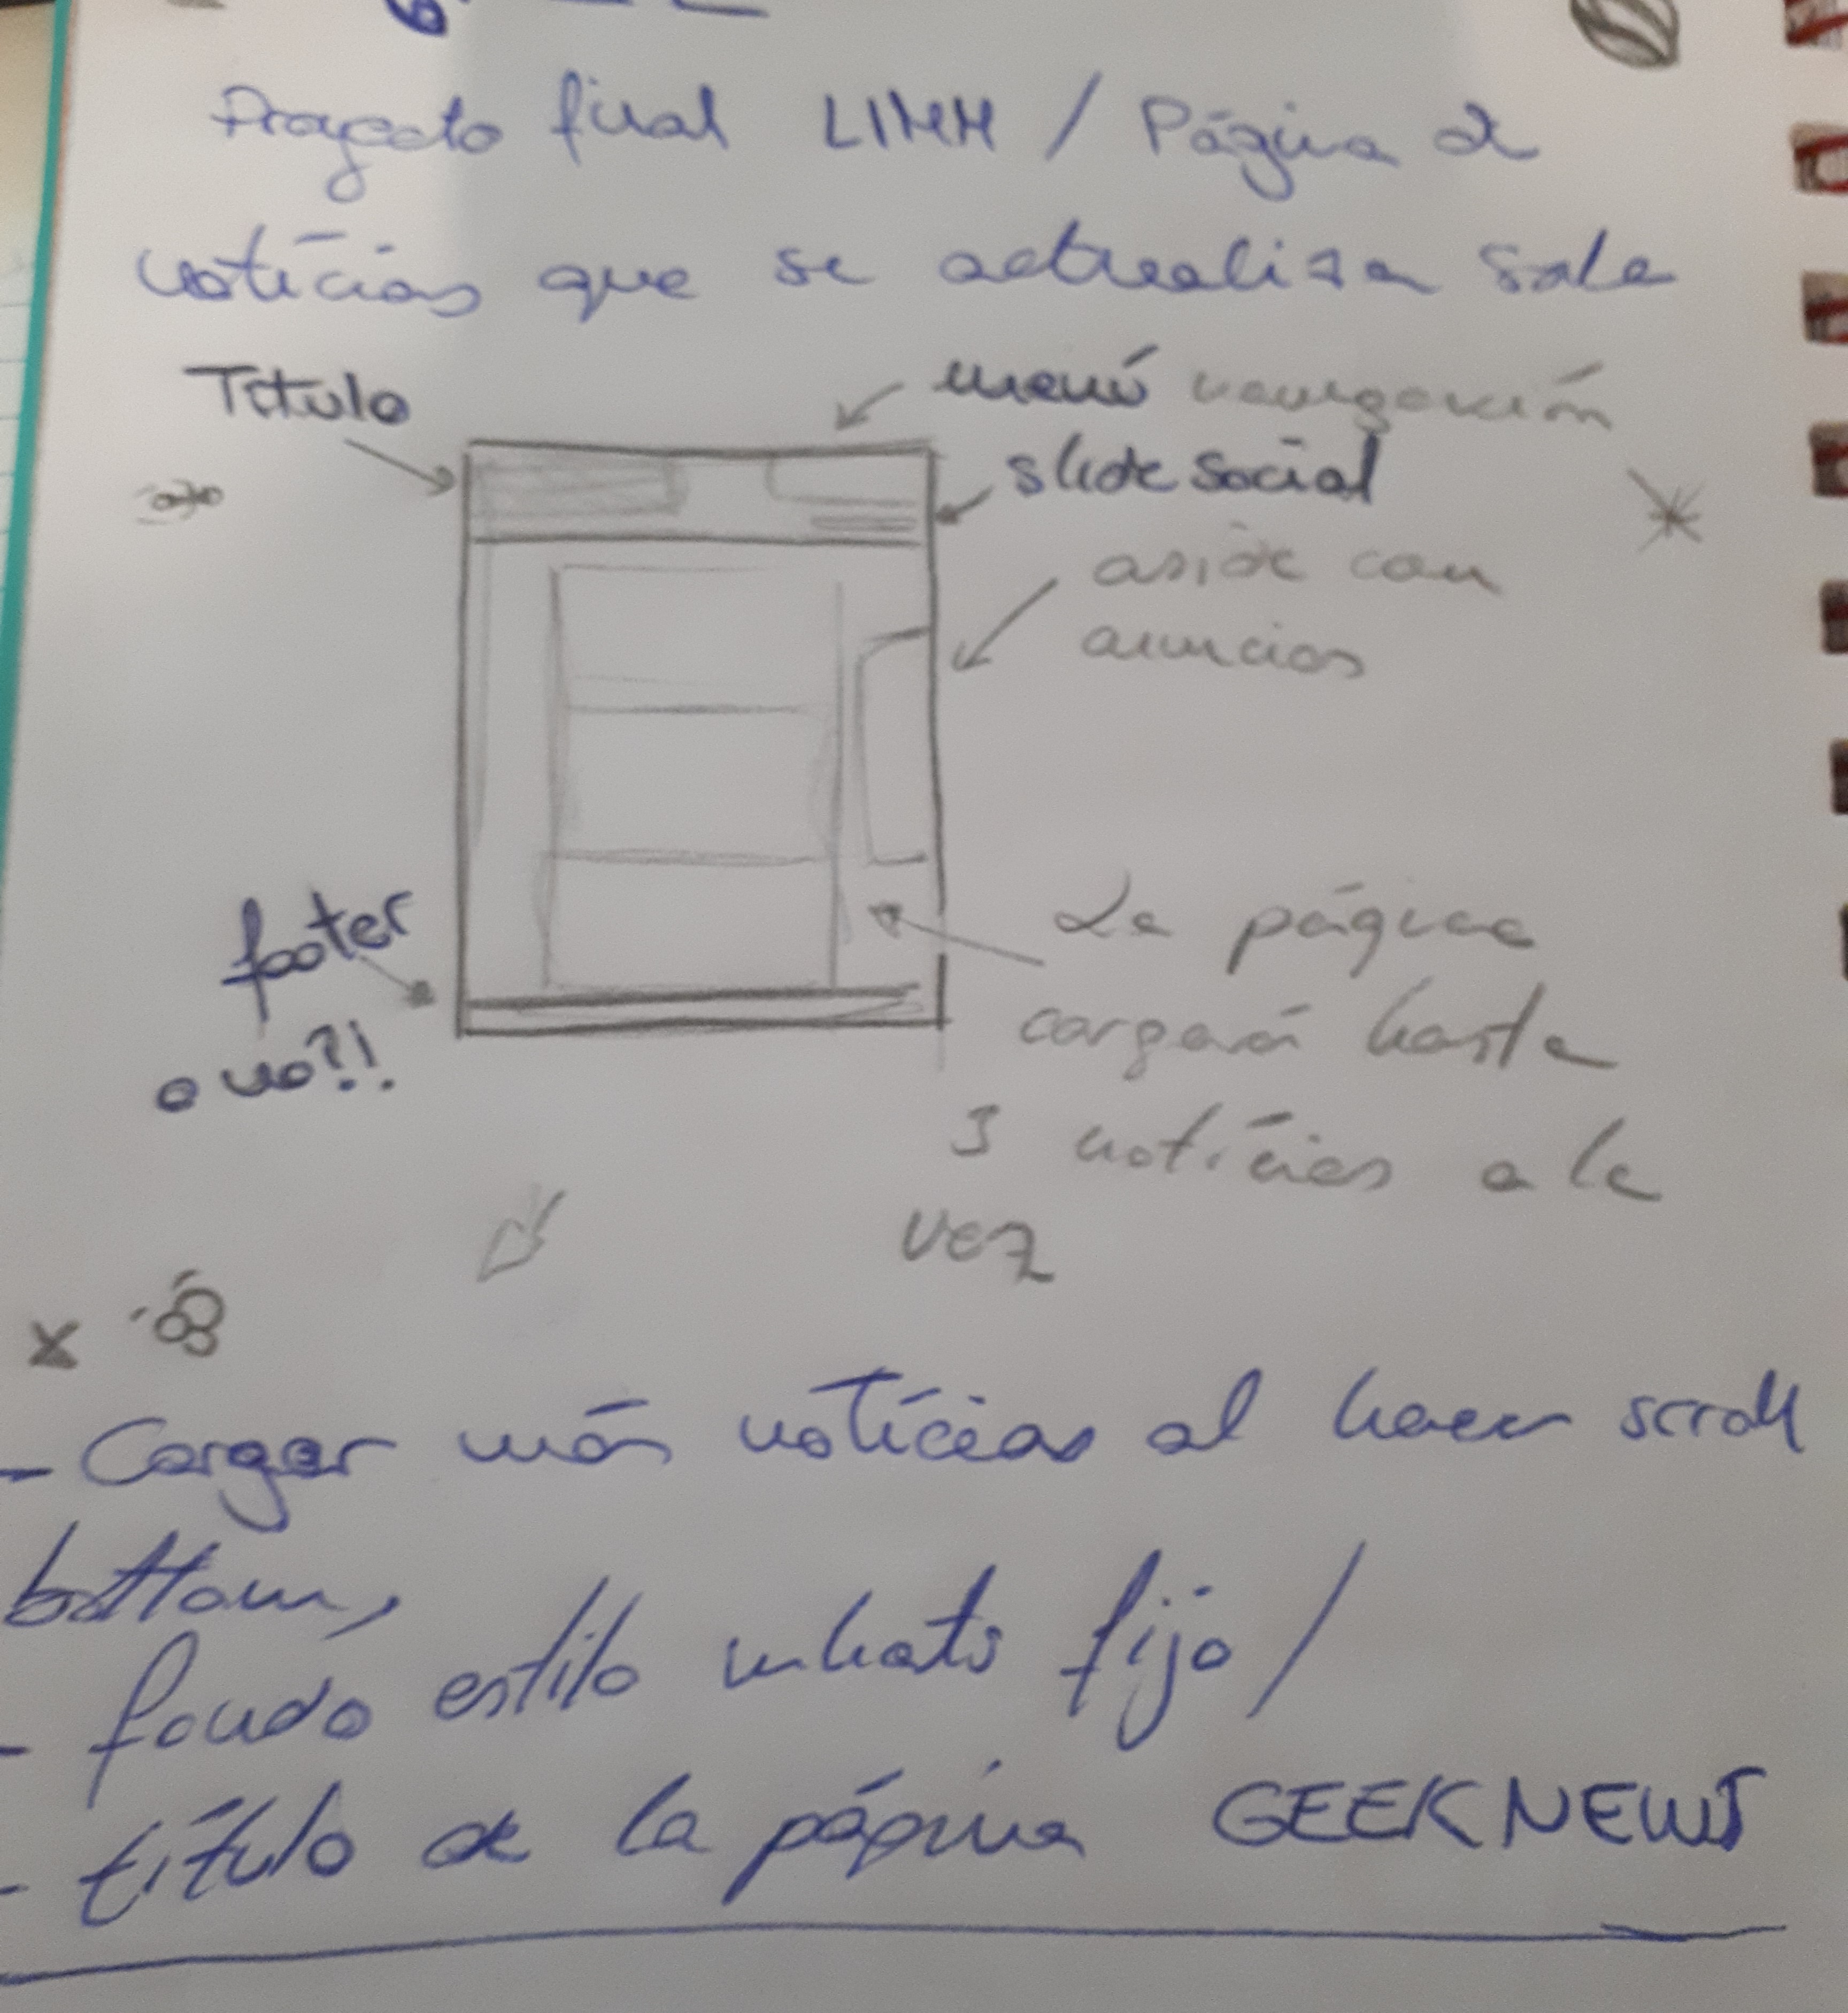 Proyecto final LIMM / Página de
notícias que se actualiza sola
Título
menú navegación
slide social
aside con
anuncios
footer
o no?!
La página
cargará hasta
3 notícias a la
vez
- Cargar más notícias al hacer scroll
bottom,
- fondo estilo whats fijo /
- título de la página GEEKNEWS